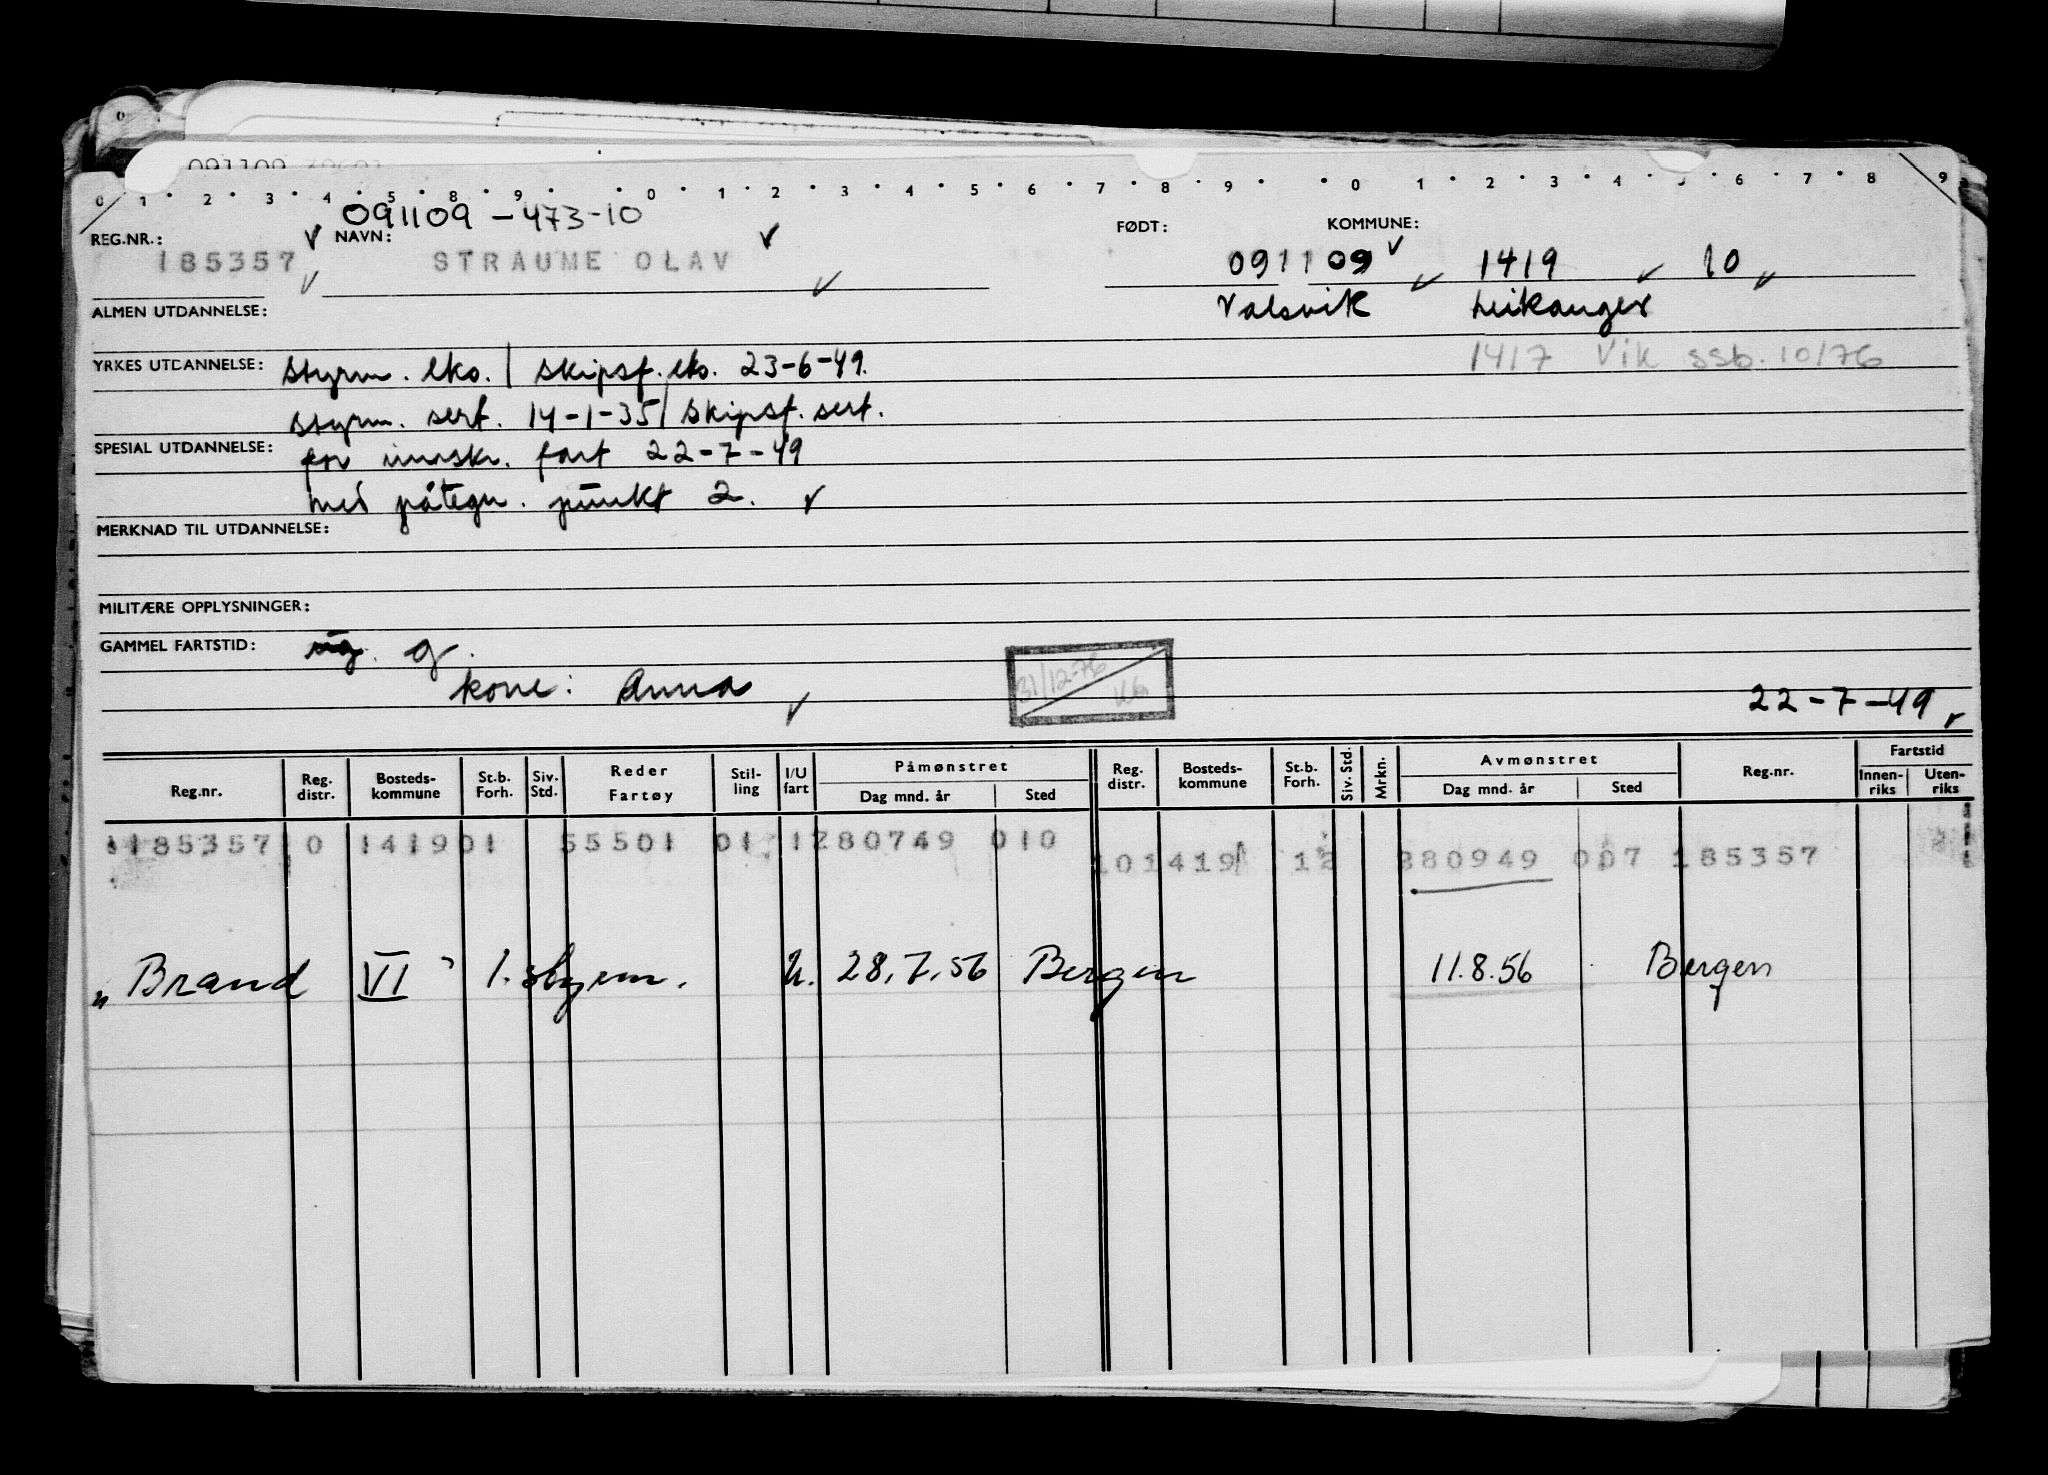 0 1 2 3 4 5 8 9 0 1 2 3 4 5 6 7 8 9 0 1 2 3 4 5 6 7 8 9
091109 - 473-10
REG.NR.: NAVN: FØDT: KOMMUNE:
185357 STRAUME OLAV 091109 1419 10
ALMEN UTDANNELSE: Valsvik Leikanger
YRKES UTDANNELSE: styrm. eks. / skipsf. eks. 23-6-49. 1417 Vik ssb. 10/76
styrm. sert. 14-1-35 / skipsf. sert.
SPESIAL UTDANNELSE: for innskr. fart 22-7-49
med påtegn. punkt 2.
MERKNAD TIL UTDANNELSE:
MILITÆRE OPPLYSNINGER:
GAMMEL FARTSTID: g.
kone: Anna 31/12-76 22-7-49
Reg.nr. Reg. distr. Bosteds-kommune St.b. Forh. Siv. Std. Reder Fartøy Stil-ling I/U fart Påmønstret Dag mnd. år Sted Reg. distr. Bosteds-kommune St.b. Forh. Siv. Std. Mrkn. Avmønstret Dag mnd. år Sted Reg.nr. Fartstid Innen-riks Uten-riks
185357 0 141901 55501 01 1280749 010
101419 12 280949 007 185357
"Brand VI" 1. styrm. U. 28.7.56 Bergen 11.8.56 Bergen